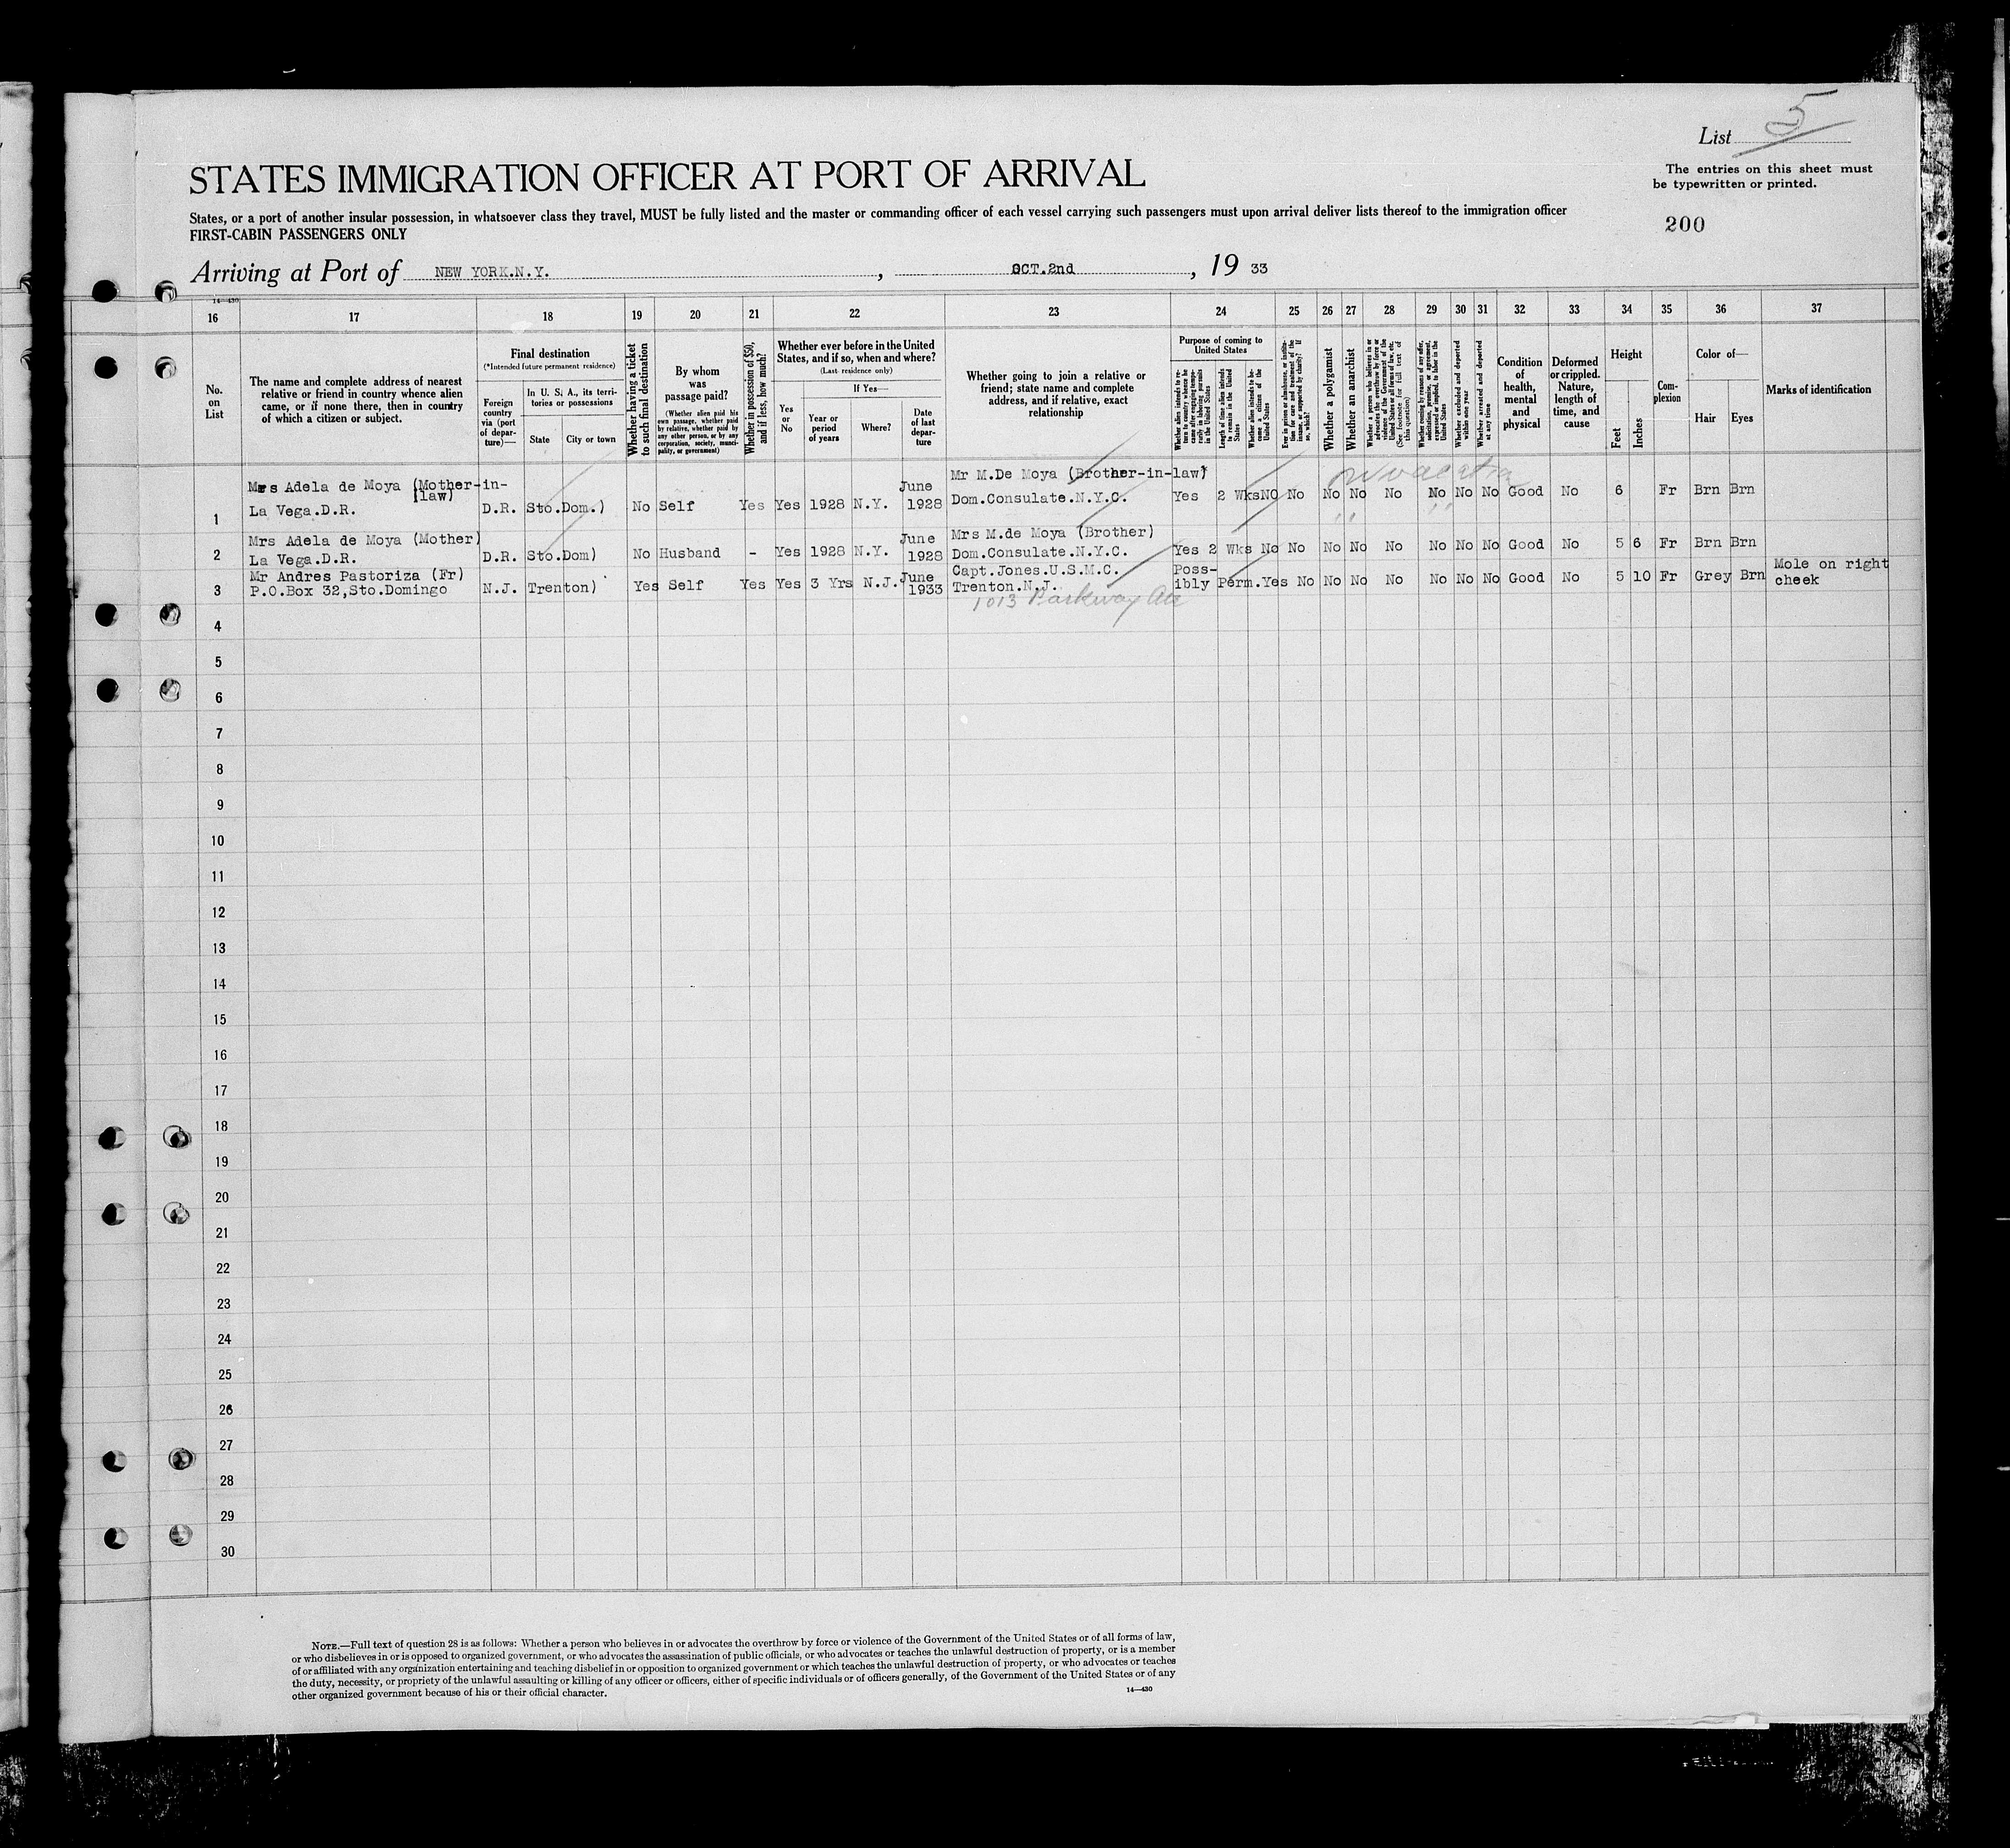 List 5
The entries on this sheet must
be typewritten or printed.
200
STATES IMMIGRATION OFFICER AT PORT OF ARRIVAL
States, or a port of another insular possession, in whatsoever class they travel, MUST be fully listed and the master or commanding officer of each vessel carrying such passengers must upon arrival deliver lists thereof to the immigration officer
FIRST-CABIN PASSENGERS ONLY
Arriving at Port of NEW YORK.N.Y. , OCT.2nd , 19 33
14—430
16 17 18 19 20 21 22 23 24 25 26 27 28 29 30 31 32 33 34 35 36 37
No.
on
List
The name and complete address of nearest
relative or friend in country whence alien
came, or if none there, then in country
of which a citizen or subject.
Final destination
(*Intended future permanent residence)
Foreign
country
via (port
of depar-
ture)—
In U. S. A., its terri-
tories or possessions
State
City or town
Whether having a ticket
to such final destination
By whom
was
passage paid?
(Whether alien paid his
own passage, whether paid
by relative, whether paid by
any other person, or by any
corporation, society, munci-
pality, or government)
Whether in possession of $50,
and if less, how much?
Whether ever before in the United
States, and if so, when and where?
(Last residence only)
Yes
or
No
If Yes—
Year or
period
of years
Where?
Date
of last
depar-
ture
Whether going to join a relative or
friend; state name and complete
address, and if relative, exact
relationship
Purpose of coming to
United States
Whether alien intends to re-
turn to country whence he
came after engaging tempo-
rarily in laboring pursuits
in the United States
Length of time alien intends
to remain in the United
States
Whether alien intends to be-
come a citizen of the
United States
Ever in prison or almshouse, or institu-
tion for care and treatment of the
insane, or supported by charity? If
so, which?
Whether a polygamist
Whether an anarchist
Whether a person who believes in or
advocates the overthrow by force or
violence of the Government of the
United States or all forms of law, etc.
(See footnote for full text of
this question)
Whether coming by reasons of any offer,
solicitation, promise, or agreement,
expressed or implied, to labor in the
United States
Whether excluded and deported
within one year
Whether arrested and deported
at any time
Condition
of
health,
mental
and
physical
Deformed
or crippled.
Nature,
length of
time, and
cause
Height
Feet
Inches
Com-
plexion
Color of—
Hair
Eyes
Marks of identification
1 Mrs Adela de Moya (Mother-in-
(law)
La Vega.D.R.
D.R. Sto.Dom.) No Self Yes Yes 1928 N.Y. June
1928
Mr M.De Moya (Brother-in-law)
Dom.Consulate.N.Y.C.
Yes 2 Wks NO No No No No No No No Good No 6 Fr Brn Brn
2 Mrs Adela de Moya (Mother)
La Vega.D.R.
D.R. Sto.Dom) No Husband - Yes 1928 N.Y. June
1928
Mrs M.de Moya (Brother)
Dom.Consulate.N.Y.C.
Yes 2 Wks No No No No No No No No Good No 5 6 Fr Brn Brn
3 Mr Andres Pastoriza (Fr)
P.O.Box 32,Sto.Domingo
N.J. Trenton) Yes Self Yes Yes 3 Yrs N.J. June
1933
Capt.Jones.U.S.M.C.
Trenton.N.J.
1013 Parkway Ave
Poss-
ibly Perm. Yes No No No No No No No Good No 5 10 Fr Grey Brn
Mole on right
cheek
4
5
6
7
8
9
10
11
12
13
14
15
16
17
18
19
20
21
22
23
24
25
26
27
28
29
30
NOTE.—Full text of question 28 is as follows: Whether a person who believes in or advocates the overthrow by force or violence of the Government of the United States or of all forms of law,
or who disbelieves in or is opposed to organized government, or who advocates the assassination of public officials, or who advocates or teaches the unlawful destruction of property, or is a member
of or affiliated with any organization entertaining and teaching disbelief in or opposition to organized government or which teaches the unlawful destruction of property, or who advocates or teaches
the duty, necessity, or propriety of the unlawful assaulting or killing of any officer or officers, either of specific individuals or of officers generally, of the Government of the United States or of any
other organized government because of his or their official character.
14—430